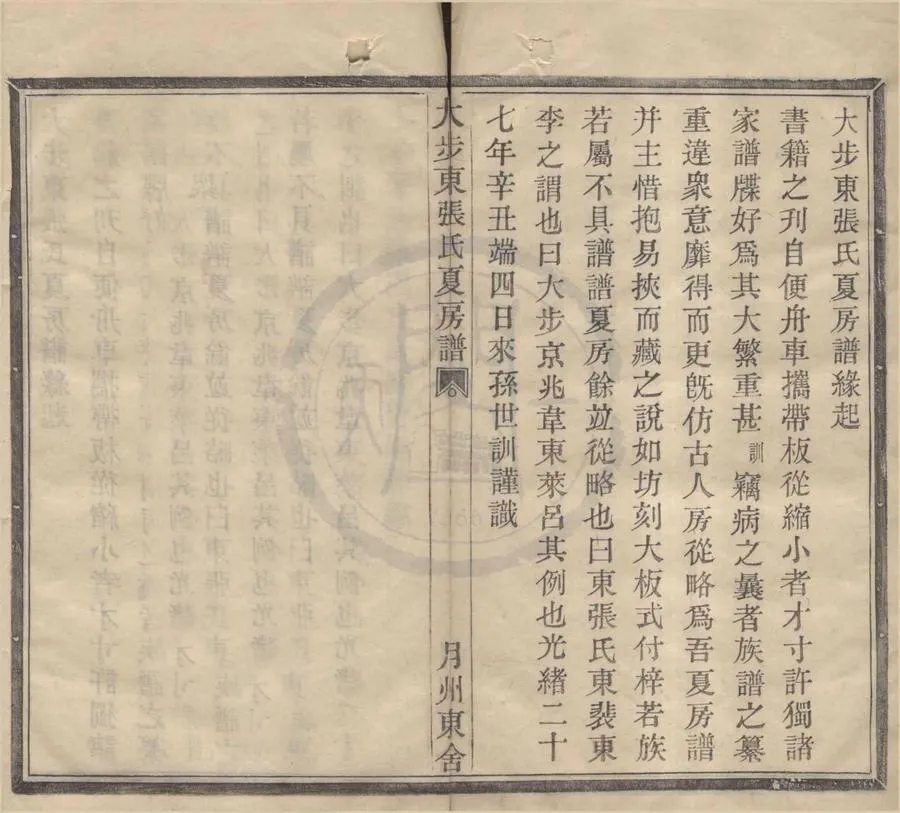 大步東張氏夏房譜緣起
書籍之刊自便舟車攜帶板從縮小者才寸許獨諸
家譜牒好爲其大繁重甚訓竊病之曩者族譜之纂
重違衆意靡得而更旣仿古人房從略爲吾夏房譜
并主惜抱易挾而藏之說如坊刻大板式付梓若族
若屬不具譜譜夏房餘竝從略也曰東張氏東裴東
李之謂也曰大步京兆韋東萊呂其例也光緒二十
七年辛丑端四日來孫世訓謹識
大步東張氏夏房譜
月州東舍